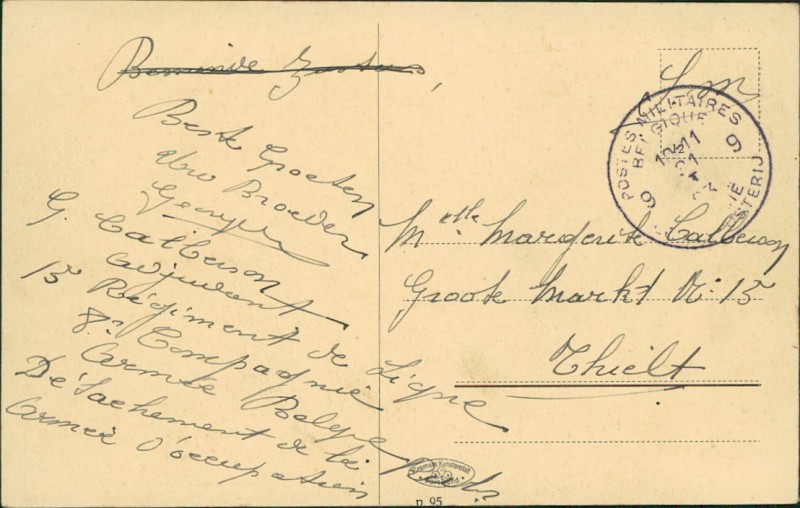 Beminde Zuster,
Beste Groeten
uw Broeder
Georges
G. Calberson
adjudant
15e Régiment de Ligne
8e Compagnie
Armée Belge
Détachement de la
Armée d'occupation
S.M.
POSTES MILITAIRES
BELGIQUE
9 9
10½11
Melle Margerite Calberson
Groote Markt N: 15
Thielt
p. 95